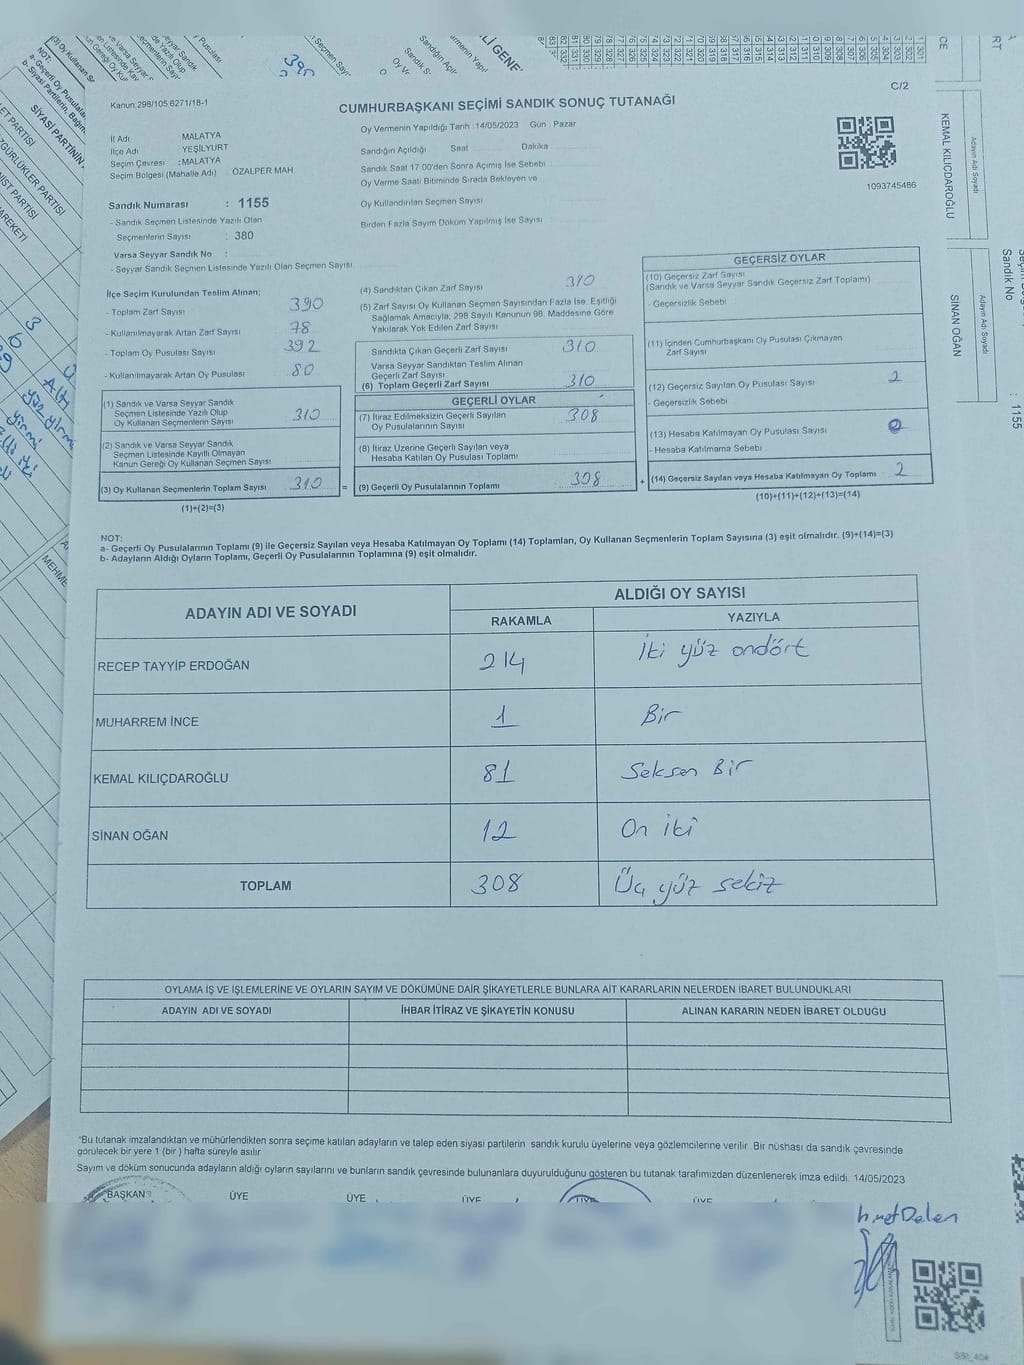 C/2
Kanun:298/105 6271/18-1
CUMHURBAŞKANI SEÇİMİ SANDIK SONUÇ TUTANAĞI
İl Adı MALATYA
İlçe Adı : YEŞİLYURT
Seçim Çevresi : MALATYA
Seçim Bölgesi (Mahalle Adı) : ÖZALPER MAH.
Oy Vermenin Yapıldığı Tarih : 14/05/2023 Gün : Pazar
Sandığın Açıldığı Saat Dakika
Sandık Saat 17 00'den Sonra Açımış İse Sebebi
Oy Verme Saati Bitiminde Sırada Bekleyen ve
Oy Kullandırılan Seçmen Sayısı
Birden Fazla Sayım Döküm Yapılmış İse Sayısı
1093745486
Sandık Numarası : 1155
- Sandık Seçmen Listesinde Yazılı Olan
Seçmenlerin Sayısı : 380
Varsa Seyyar Sandık No :
- Seyyar Sandık Seçmen Listesinde Yazılı Olan Seçmen Sayısı
İlçe Seçim Kurulundan Teslim Alınan;
- Toplam Zarf Sayısı 390
- Kullanılmayarak Artan Zarf Sayısı 78
- Toplam Oy Pusulası Sayısı 392
- Kullanılmayarak Artan Oy Pusulası 80
(1) Sandık ve Varsa Seyyar Sandık
Seçmen Listesinde Yazılı Olup
Oy Kullanan Seçmenlerin Sayısı 310
(2) Sandık ve Varsa Seyyar Sandık
Seçmen Listesinde Kayıtlı Olmayan
Kanun Gereği Oy Kullanan Seçmen Sayısı
(3) Oy Kullanan Seçmenlerin Toplam Sayısı 310 =
(1)+(2)=(3)
(4) Sandıktan Çıkan Zarf Sayısı 310
(5) Zarf Sayısı Oy Kullanan Seçmen Sayısından Fazla İse, Eşitliği
Sağlamak Amacıyla; 298 Sayılı Kanunun 98. Maddesine Göre
Yakılarak Yok Edilen Zarf Sayısı
Sandıkta Çıkan Geçerli Zarf Sayısı 310
Varsa Seyyar Sandıktan Teslim Alınan
Geçerli Zarf Sayısı
(6) Toplam Geçerli Zarf Sayısı 310
GEÇERLİ OYLAR
(7) İtiraz Edilmeksizin Geçerli Sayılan
Oy Pusulalarının Sayısı 308
(8) İtiraz Üzerine Geçerli Sayılan veya
Hesaba Katılan Oy Pusulası Toplamı
(9) Geçerli Oy Pusulalarının Toplamı 308 +
GEÇERSİZ OYLAR
(10) Geçersiz Zarf Sayısı
(Sandık ve Varsa Seyyar Sandık Geçersiz Zarf Toplamı)
- Geçersizlik Sebebi
(11) İçinden Cumhurbaşkanı Oy Pusulası Çıkmayan
Zarf Sayısı
(12) Geçersiz Sayılan Oy Pusulası Sayısı 2
- Geçersizlik Sebebi
(13) Hesaba Katılmayan Oy Pusulası Sayısı
- Hesaba Katılmama Sebebi
(14) Geçersiz Sayılan veya Hesaba Katılmayan Oy Toplamı 2
(10)+(11)+(12)+(13)=(14)
NOT:
a- Geçerli Oy Pusulalarının Toplamı (9) ile Geçersiz Sayılan veya Hesaba Katılmayan Oy Toplamı (14) Toplamları, Oy Kullanan Seçmenlerin Toplam Sayısına (3) eşit olmalıdır. (9)+(14)=(3)
b- Adayların Aldığı Oyların Toplamı, Geçerli Oy Pusulalarının Toplamına (9) eşit olmalıdır.
ADAYIN ADI VE SOYADI
ALDIĞI OY SAYISI
RAKAMLA YAZIYLA
RECEP TAYYİP ERDOĞAN 214 İki yüz ondört
MUHARREM İNCE 1 Bir
KEMAL KILIÇDAROĞLU 81 Seksen Bir
SİNAN OĞAN 12 On iki
TOPLAM 308 Üç yüz sekiz
OYLAMA İŞ VE İŞLEMLERİNE VE OYLARIN SAYIM VE DÖKÜMÜNE DAİR ŞİKAYETLERLE BUNLARA AİT KARARLARIN NELERDEN İBARET BULUNDUKLARI
ADAYIN ADI VE SOYADI İHBAR İTİRAZ VE ŞİKAYETİN KONUSU ALINAN KARARIN NEDEN İBARET OLDUĞU
*Bu tutanak imzalandıktan ve mühürlendikten sonra seçime katılan adayların ve talep eden siyasi partilerin sandık kurulu üyelerine veya gözlemcilerine verilir. Bir nüshası da sandık çevresinde
görülecek bir yere 1 (bir) hafta süreyle asılır
Sayım ve döküm sonucunda adayların aldığı oyların sayılarını ve bunların sandık çevresinde bulunanlara duyurulduğunu gösteren bu tutanak tarafımızdan düzenlenerek imza edildi. 14/05/2023
BAŞKAN ÜYE ÜYE ÜYE ÜYE ÜYE
KEMAL KILIÇDAROĞLU
Adayın Adı Soyadı
SİNAN OĞAN
Adayın Adı Soyadı
Sandık No
: 1155